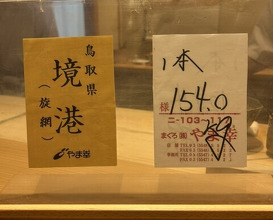 鳥取県
境港
（旋網）
やま幸
1本
様
154.0
二-103-11
まぐろ
やま幸